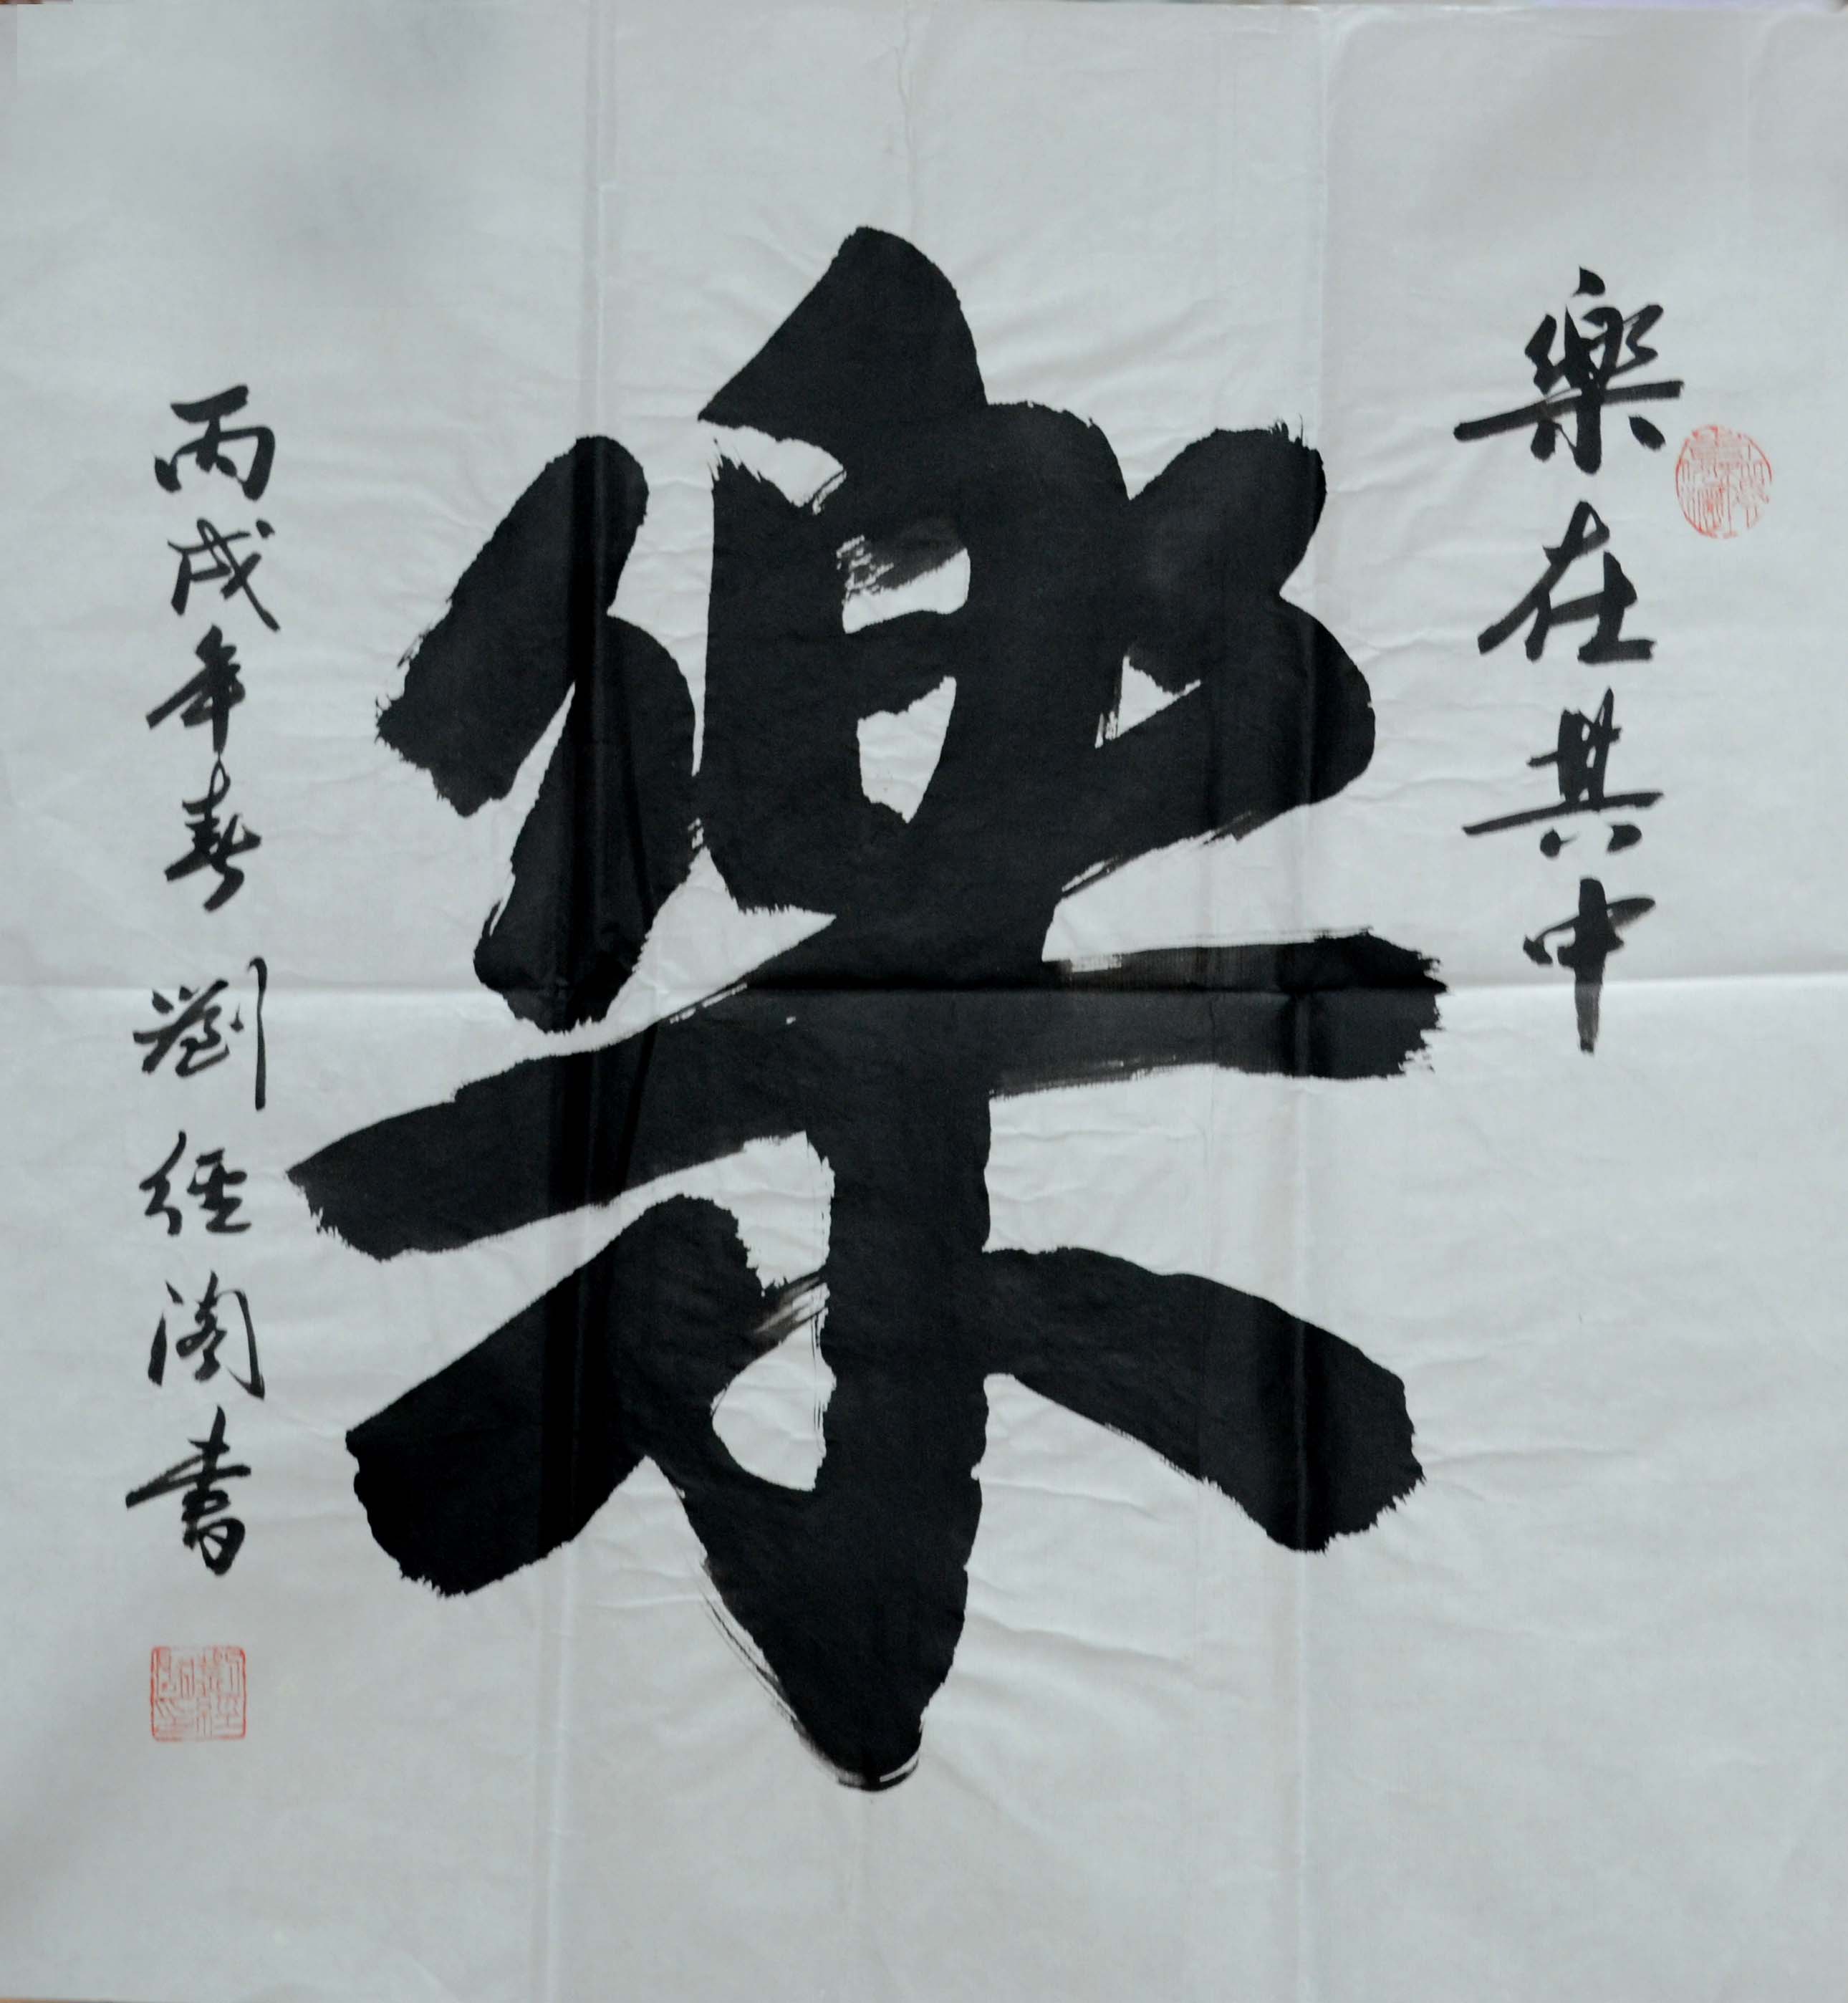 樂在其中
樂
丙戌年春 劉經閣書